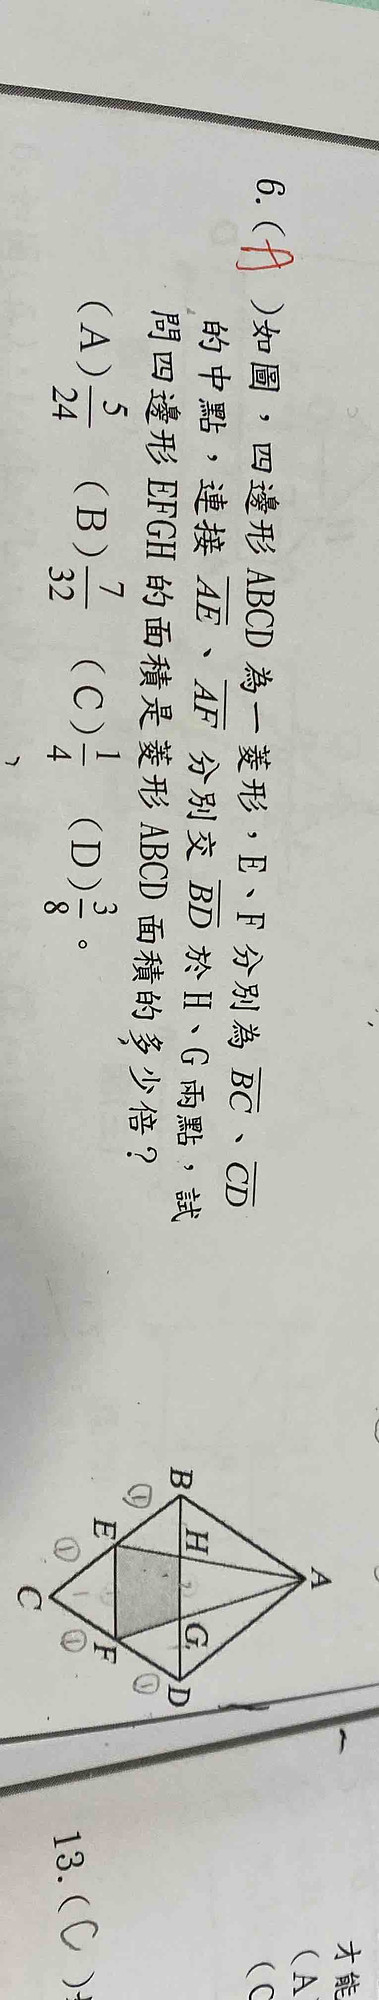 6.(A)如圖，四邊形ABCD為一菱形，E、F分別為BC、CD
的中點，連接AE、AF分別交BD於H、G兩點，試
問四邊形EFGH的面積是菱形ABCD面積的多少倍？
(A)5/24 (B)7/32 (C)1/4 (D)3/8。
A
B H G D
① E F ①
① C ①
13.(C)
才能
(A
(C